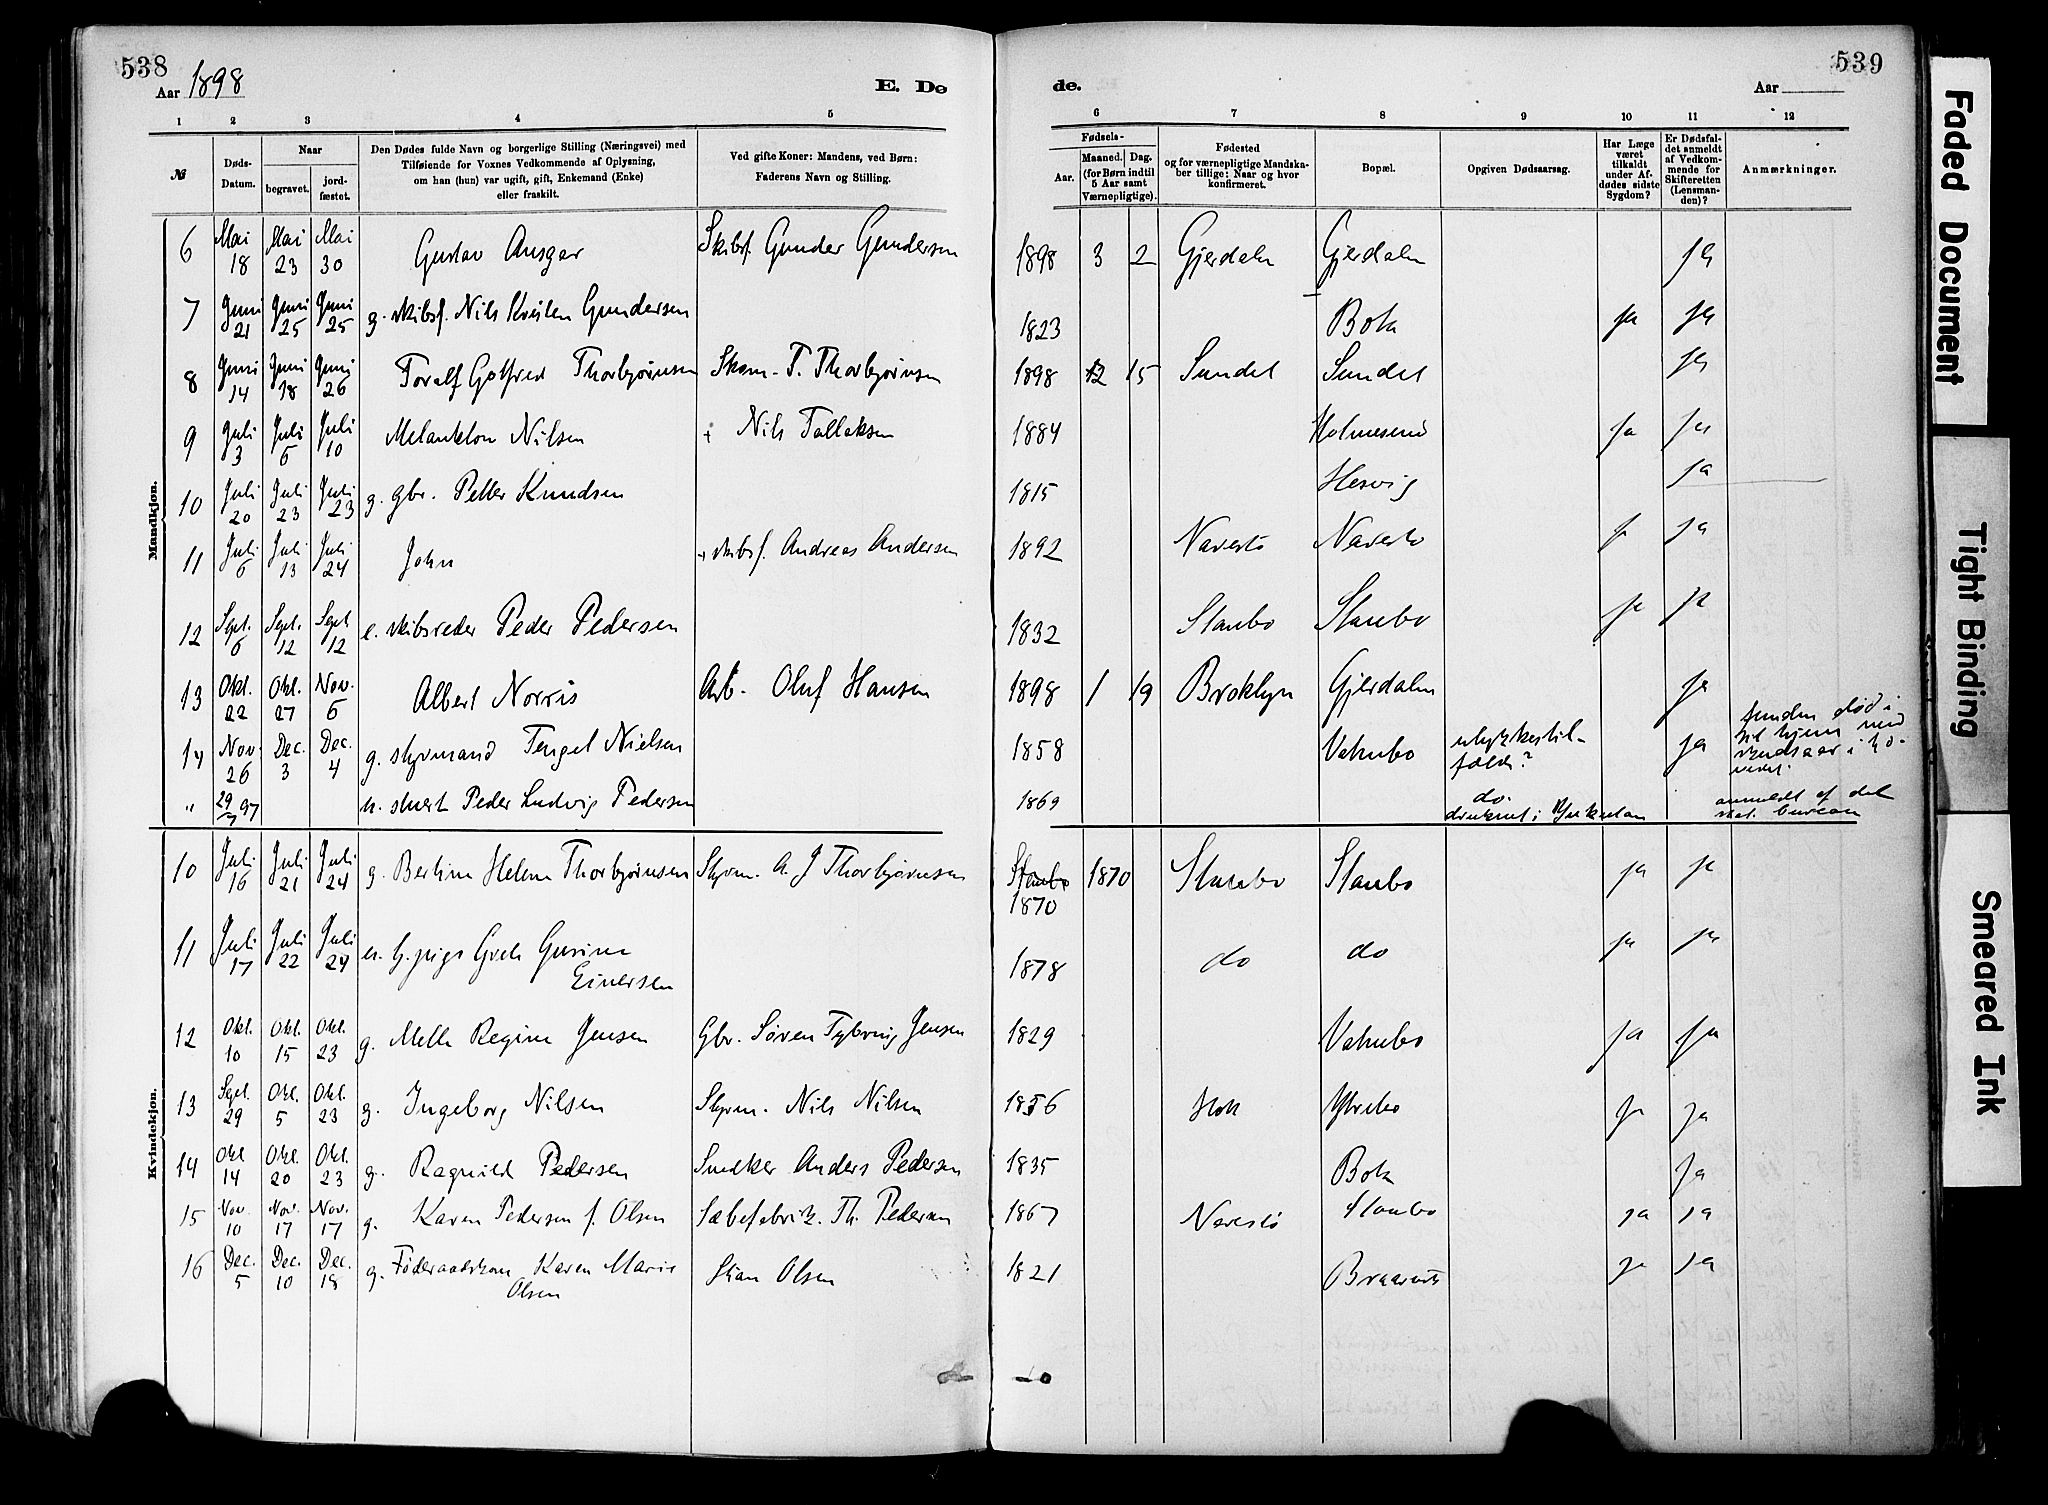 538
Aar 1898
E. Dø
1 2 3 4 5
№
Døds-Datum.
Naar
begravet.
jord-fæstet.
Den Dødes fulde Navn og borgerlige Stilling (Næringsvei) med
Tilføiende for Voxnes Vedkommende af Oplysning,
om han (hun) var ugift, gift, Enkemand (Enke)
eller fraskilt.
Ved gifte Koner: Mandens, ved Børn:
Faderens Navn og Stilling.
de.
539
Aar
6 7 8 9 10 11 12
Fødsels-
Aar.
Maaned. Dag.
(for Børn indtil
5 Aar samt
Værnepligtige).
Fødested
og for værnepligtige Mandska-
ber tillige: Naar og hvor
konfirmeret.
Bopæl.
Opgiven Dødsaarsag.
Har Læge
været
tilkaldt
under Af-
dødes sidste
Sygdom?
Er Dødsfal-
det anmeldt
af Vedkom-
mende for
Skifteretten
(Lensman-
den)?
Anmærkninger.
Mandkjøn.
6 Mai 18 Mai 23 Mai 30 Gustav Ansgar Skibsf. Gunder Gundersen 1898 3 2 Gjerdalen Gjerdalen ja
7 Juni 21 Juni 25 Juni 25 g. skibsf. Nils Gundersen 1823 Bota ja ja
8 Juni 14 Juni 18 Juni 26 Toralf Gotfred Thorbjørnsen Skom. T. Thorbjørnsen 1898 2 15 Sundet Sundet ja
9 Juli 3 Juli 6 Juli 10 Melankton Nilsen + Nils Tallaksen 1884 Holmesund ja ja
10 Juli 20 Juli 23 Juli 23 g. gbr. Petter Knudsen 1815 Hesvig ja
11 Juli 6 Juli 13 Juli 24 John + skibsf. Andreas Andersen 1892 Navestø Navestø ja ja
12 Sept. 6 Sept. 12 Sept 12 e. skibsreder Peder Pedersen 1832 Staubo Staubo ja ja
13 Okt. 22 Okt. 27 Nov. 6 Albert Norris Arb. Oluf Hansen 1898 1 19 Broklyn Gjerdalen ja
14 Nov. 26 Dec. 3 Dec. 4 g. styrmand Tengel Nielsen 1858 Vatnebo ulykkestil-
fælde? ja funden død i
sit hjem med
skudsaar i ho-
vedet.
" 29/7 97 u. stuert Peder Ludvig Pedersen 1869 do.
druknet i anmeldt af det
stat. bureau
Kvindekjøn.
10 Juli 16 Juli 21 Juli 24 g. Bertine Helene Thorbjørnsen Styrm. A. J Thorbjørnsen Staubo 1870
1870 Staubo Staubo ja ja
11 Juli 17 Juli 22 Juli 24 u. Grete Gurine
Einersen 1878 do do ja ja
12 Okt. 10 Okt. 15 Okt. 23 g. Mette Regine Jensen Gbr. Søren Tybring Jensen 1829 Vatnebo ja ja
13 Sept. 29 Okt. 5 Okt. 23 g. Ingeborg Nilsen Styrm. Nils Nilsen 1856 Ytrebo ja ja
14 Okt 14 Okt. 20 Okt. 23 g. Ragnild Pedersen Snedker Anders Pedersen 1835 Bota ja
15 Nov. 10 Nov. 17 Nov. 17 g. Karen Pedersen f. Olsen Sæbefabrik. Th. Pedersen 1867 Navestø Staubo ja ja
16 Dec. 5 Dec. 10 Dec. 18 g. Føderaadskone Karen Marie
Olsen Stian Olsen 1821 ja ja
Faded Document
Tight Binding
Smeared Ink